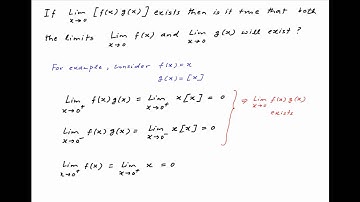 If Lim x→0 [f(x) g(x)] exists then is it true that both
the limits Lim x→0 f(x) and Lim x→0 g(x) will exist ?
For example, consider f(x) = x
g(x) = [x]
Lim x→0⁺ f(x) g(x) = Lim x→0⁺ x [x] = 0
Lim x→0⁻ f(x) g(x) = Lim x→0⁻ x [x] = 0
⇒ Lim x→0 f(x) g(x)
exists
Lim x→0⁺ f(x) = Lim x→0⁺ x = 0